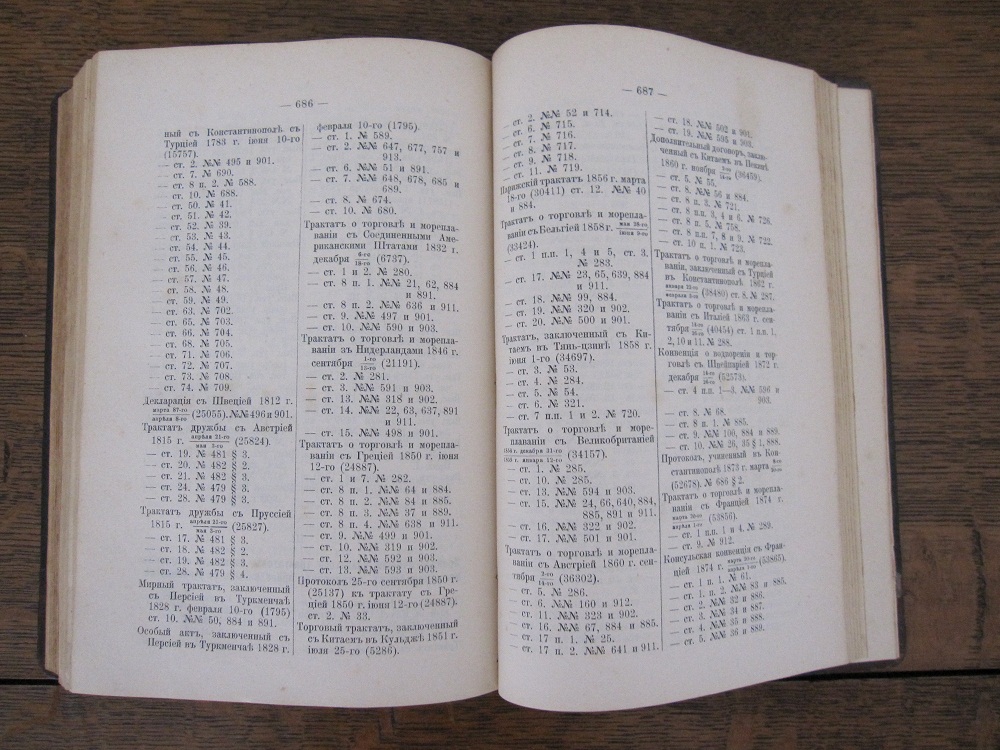 — 686 —
ный съ Константинополѣ съ
Турціей 1783 г. іюня 10-го
(15757).
— ст. 2. №№ 495 и 901.
— ст. 7. № 690.
— ст. 8 п. 2. № 588.
— ст. 10. № 688.
— ст. 50. № 41.
— ст. 51. № 42.
— ст. 52. № 39.
— ст. 53. № 43.
— ст. 54. № 44.
— ст. 55. № 45.
— ст. 56. № 46.
— ст. 57. № 47.
— ст. 58. № 48.
— ст. 59. № 49.
— ст. 63. № 702.
— ст. 65. № 703.
— ст. 66. № 704.
— ст. 68. № 705.
— ст. 71. № 706.
— ст. 72. № 707.
— ст. 73. № 708.
— ст. 74. № 709.
Декларація съ Швеціей 1812 г.
марта 27-го / апрѣля 8-го (25055). №№ 496 и 901.
Трактатъ дружбы съ Австріей
1815 г. апрѣля 21-го / мая 3-го (25824).
— ст. 19. № 481 § 3.
— ст. 20. № 482 § 2.
— ст. 21. № 482 § 3.
— ст. 24. № 479 § 3.
— ст. 28. № 479 § 3.
Трактатъ дружбы съ Пруссіей
1815 г. апрѣля 21-го / мая 3-го (25827).
— ст. 17. № 481 § 3.
— ст. 18. № 482 § 2.
— ст. 19. № 482 § 3.
— ст. 28. № 479 § 4.
Мирный трактатъ, заключенный
съ Персіей въ Туркменчаѣ
1828 г. февраля 10-го (1795)
ст. 10. №№ 50, 884 и 891.
Особый актъ, заключенный съ
Персіей въ Туркменчаѣ 1828 г.
февраля 10-го (1795).
— ст. 1. № 589.
— ст. 2. №№ 647, 677, 757 и
913.
— ст. 6. №№ 51 и 891.
— ст. 7. №№ 648, 678, 685 и
689.
— ст. 8. № 674.
— ст. 10. № 680.
Трактатъ о торговлѣ и морепла-
ваніи съ Соединенными Аме-
риканскими Штатами 1832 г.
декабря 6-го / 18-го (6737).
— ст. 1 и 2. № 280.
— ст. 8 п. 1. №№ 21, 62, 884
и 891.
— ст. 8 п. 2. №№ 636 и 911.
— ст. 9. №№ 497 и 901.
— ст. 10. №№ 590 и 903.
Трактатъ о торговлѣ и морепла-
ваніи зъ Нидерландами 1846 г.
сентября 1-го / 13-го (21191).
— ст. 2. № 281.
— ст. 3. №№ 591 и 903.
— ст. 13. №№ 318 и 902.
— ст. 14. №№ 22, 63, 637, 891
и 911.
— ст. 15. №№ 498 и 901.
Трактатъ о торговлѣ и морепла-
ваніи съ Греціей 1850 г. іюня
12-го (24887).
— ст. 1 и 7. № 282.
— ст. 8 п. 1. №№ 64 и 884.
— ст. 8 п. 2. №№ 84 и 885.
— ст. 8 п. 3. №№ 37 и 889.
— ст. 8 п. 4. №№ 638 и 911.
— ст. 9. №№ 499 и 901.
— ст. 10. №№ 319 и 902.
— ст. 12. №№ 592 и 903.
— ст. 13. №№ 593 и 903.
Протоколъ 25-го сентября 1850 г.
(25137) къ трактату съ Гре-
ціей 1850 г. іюня 12-го (24887).
ст. 2. № 33.
Торговый трактатъ, заключенный
съ Китаемъ въ Кульджѣ 1851 г.
іюля 25-го (5286).
— 687 —
— ст. 2. №№ 52 и 714.
— ст. 6. № 715.
— ст. 7. № 716.
— ст. 8. № 717.
— ст. 9. № 718.
— ст. 11. № 719.
Парижскій трактатъ 1856 г. марта
18-го (30411) ст. 12. №№ 40
и 884.
Трактатъ о торговлѣ и морепла-
ваніи съ Бельгіей 1858 г. мая 28-го / іюня 9-го
(33424).
— ст. 1 п.п. 1, 4 и 5, ст. 3.
№ 283.
— ст. 17. №№ 23, 65, 639, 884
и 911.
— ст. 18. №№ 99, 884.
— ст. 19. №№ 320 и 902.
— ст. 20. №№ 500 и 901.
Трактатъ, заключенный съ Ки-
таемъ въ Тянь-цзинѣ 1858 г.
іюня 1-го (34697).
— ст. 3. № 53.
— ст. 4. № 284.
— ст. 5. № 54.
— ст. 6. № 321.
— ст. 7 п.п. 1 и 2. № 720.
Трактатъ о торговлѣ и море-
плаваніи съ Великобританіей
1858 г. декабря 31-го / 1859 г. января 12-го (34157).
— ст. 1. № 285.
— ст. 10. № 285.
— ст. 13. №№ 594 и 903.
— ст. 15. №№ 24, 66, 640, 884,
885, 891 и 911.
— ст. 16. №№ 322 и 902.
— ст. 17. №№ 501 и 901.
Трактатъ о торговлѣ и морепла-
ваніи съ Австріей 1860 г. сен-
тября 2-го / 14-го (36302).
— ст. 5. № 286.
— ст. 6. №№ 160 и 912.
— ст. 11. №№ 323 и 902.
— ст. 16. №№ 67, 884 и 885.
— ст. 17 п. 1. № 25.
— ст. 17 п. 2. №№ 641 и 911.
— ст. 18. №№ 502 и 901.
— ст. 19. №№ 595 и 903.
Дополнительный договоръ, заклю-
ченный съ Китаемъ въ Пекинѣ
1860 г. ноября 2-го / 14-го (36459).
— ст. 5. № 55.
— ст. 8. №№ 56 и 884.
— ст. 8 п. 3. № 721.
— ст. 8 пп. 3, 4 и 6. № 726.
— ст. 8 п. 5. № 758.
— ст. 8 пп. 7, 8 и 9. № 722.
— ст. 10 п. 1. № 723.
Трактатъ о торговлѣ и морепла-
ваніи, заключенный съ Турціей
въ Константинополѣ 1862 г.
января 22-го / февраля 3-го (38480) ст. 8. № 287.
Трактатъ о торговлѣ и морепла-
ваніи съ Италіей 1863 г. сен-
тября 16-го / 28-го (40454) ст. 1 п.п. 1,
2, 10 и 11. № 288.
Конвенція о водвореніи и тор-
говлѣ съ Швейцаріей 1872 г.
декабря 14-го / 26-го (52573).
— ст. 4 п.п. 1—3. №№ 596 и
903.
— ст. 8. № 68.
— ст. 8 п. 1. № 885.
— ст. 9. №№ 100, 884 и 889.
— ст. 10. №№ 26, 35 § 1, 888.
Протоколъ, учиненный въ Кон-
стантинополѣ 1873 г. марта
(52678). № 686 § 2.
Трактатъ о торговлѣ и морепла-
ваніи съ Франціей 1874 г.
марта 20-го / апрѣля 1-го (53856).
— ст. 1 п.п. 1 и 4. № 289.
— ст. 9. № 912.
Консульская конвенція съ Фран-
ціей 1874 г. марта 20-го / апрѣля 1-го (53865).
— ст. 1 п. 1. № 61.
— ст. 1 п. 2. №№ 83 и 885.
— ст. 2. №№ 32 и 886.
— ст. 3. №№ 34 и 887.
— ст. 4. №№ 35 и 888.
— ст. 5. №№ 36 и 889.